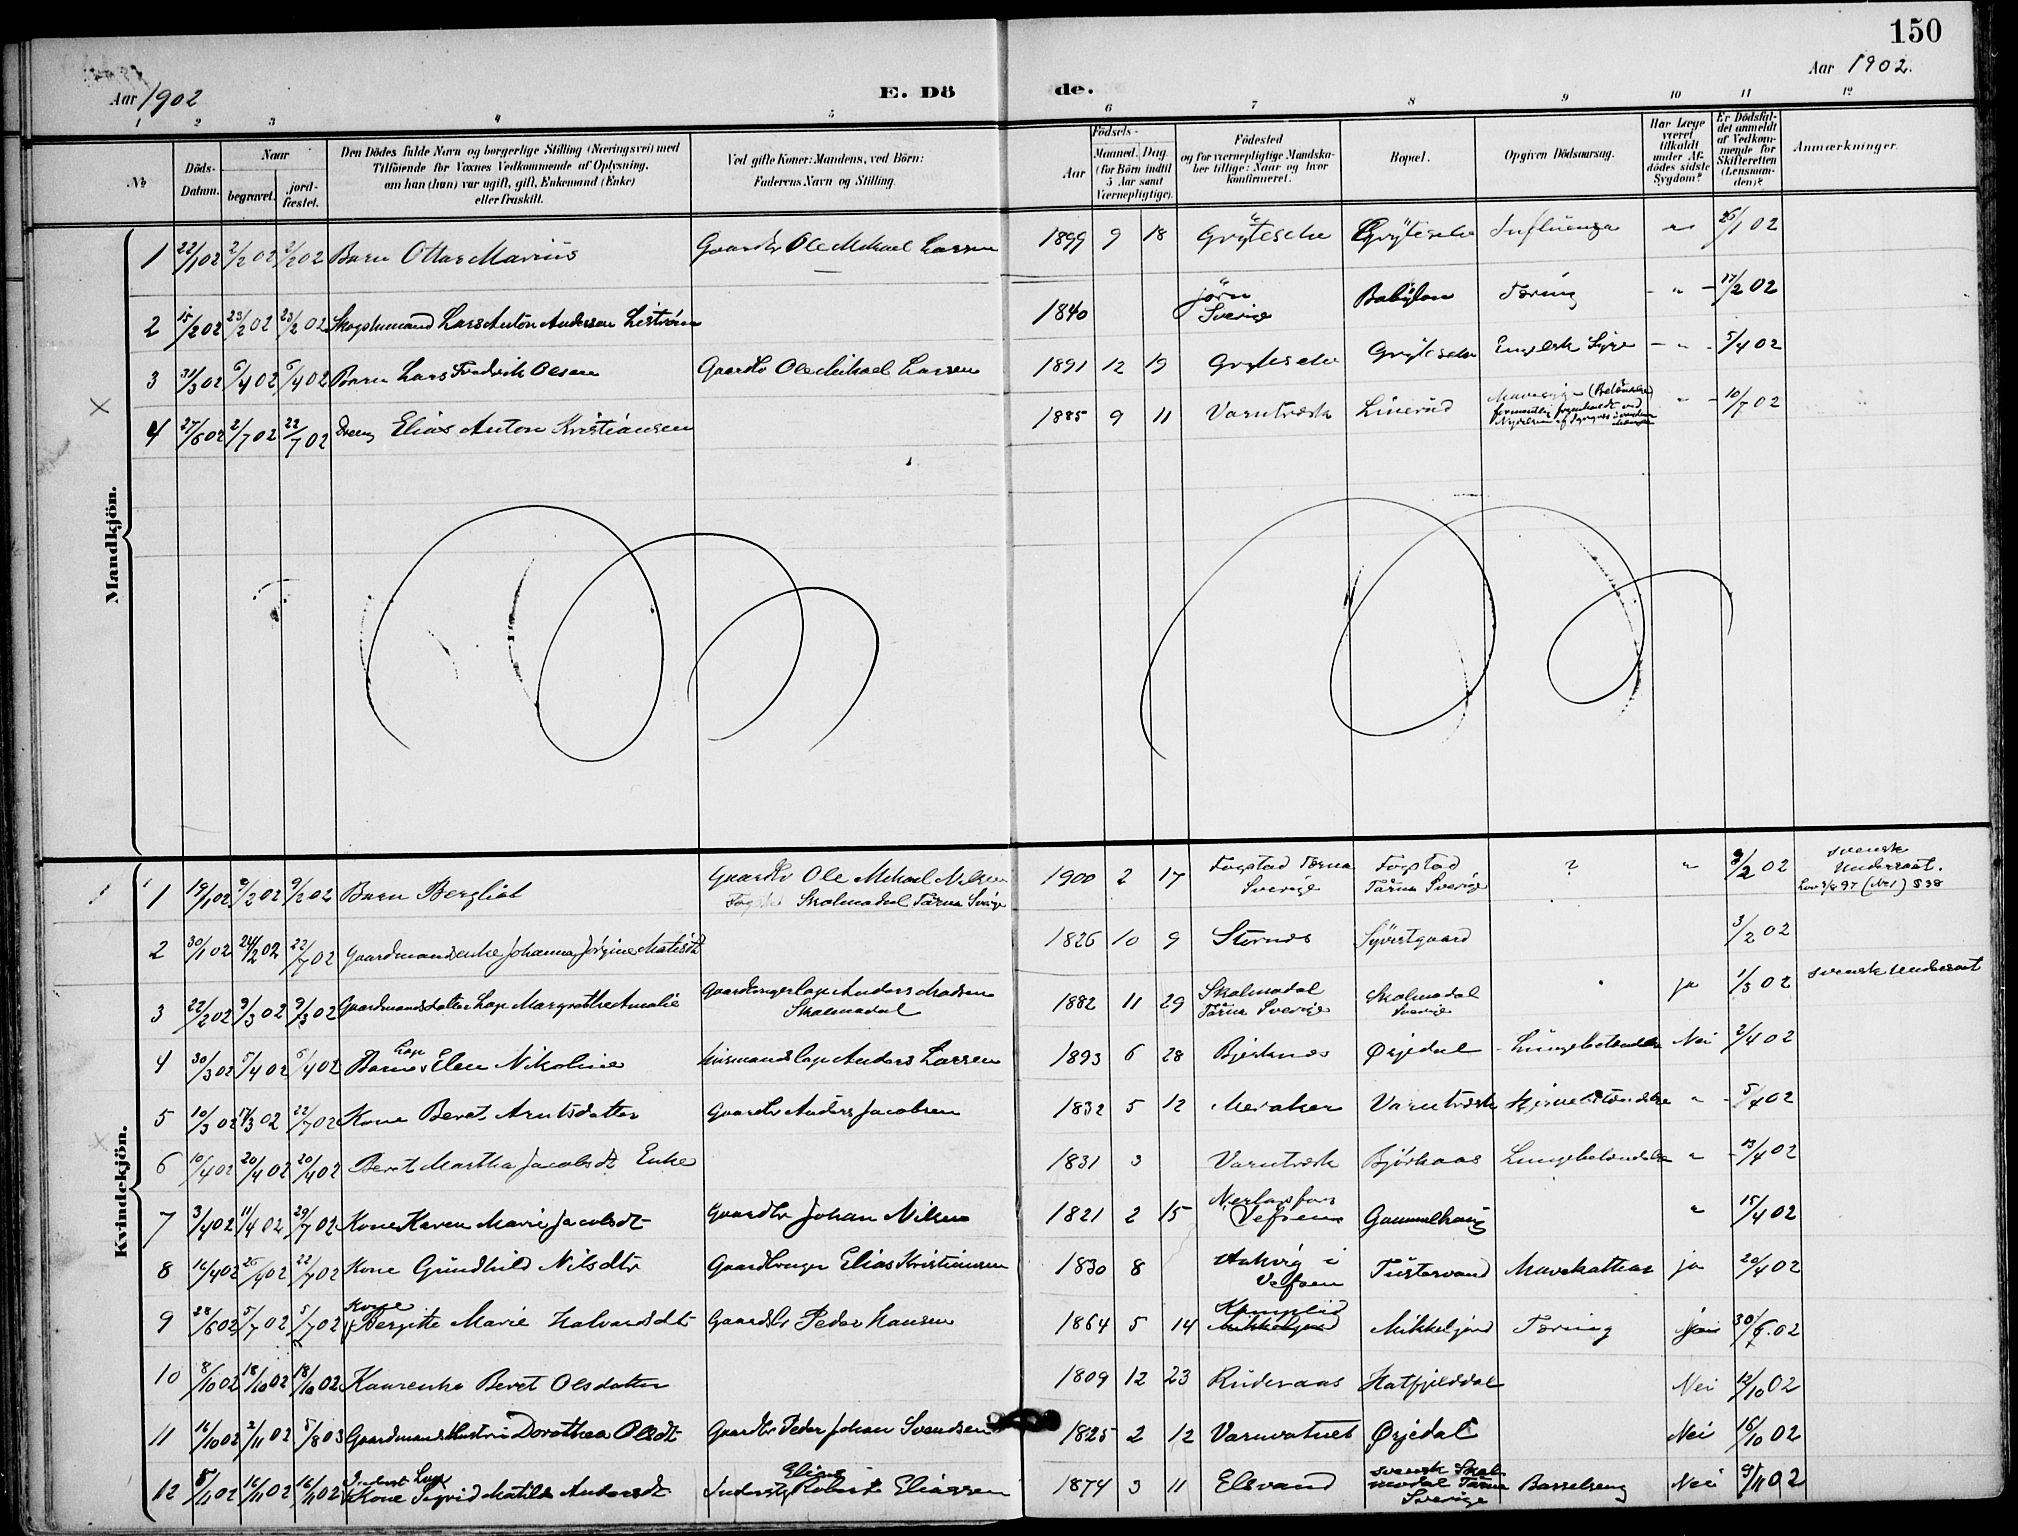 150
Aar 1902
E. Dö
de.
Aar 1902.
1 2 3 4 5 6 7 8 9 10 11 12
No
Döds-Datum.
Naar
begravet.
jord-fæstet.
Den Dödes fulde Navn og borgerlige Stilling (Næringsvei) med
Tilföiende for Voxnes Vedkommende af Oplysning,
om han (hun) var ugift, gift, Enkemand (Enke)
eller fraskilt.
Ved gifte Koner: Mandens, ved Börn:
Faderens Navn og Stilling.
Födsels-
Aar
Maaned. Dag.
(for Börn indtil
5 Aar samt
Værnepligtige).
Födested
og for værnepligtige Mandska-
ber tillige: Naar og hvor
konfirmeret.
Bopæl.
Opgiven Dödsaarsag.
Har Læge
været
tilkaldt
under Af-
dödes sidste
Sygdom?
Er Dödsfal-
det anmeldt
af Vedkom-
mende for
Skifteretten
(Lensman-
den)?
Anmærkninger.
Mandkjön.
1 22/1 02 2/2 02 2/2 02 Barn Ottar Marius Gaardbr Ole Mikael Larsen 1899 9 18 Gryteselv Gryteselv Influenza " 26/1 02
2 15/2 02 23/2 02 23/2 02 Skogstumand Lars Anton Andersen Liström 1840 Jörn Sverige Babylon Tæring - " - 17/2 02
3 31/3 02 6/4 02 6/4 02 Barn Lars Fredrik Olsen Gaardbr Ole Mikael Larsen 1891 12 19 Gryteselv Gryteselv Engelsk Syge - " - 5/4 02
X
4 27/6 02 2/7 02 22/7 02 Dreng Elias Anton Kristiansen 1885 9 11 Varntræsk Linerud Mavesyge (Betændelse) " - 10/7 02
Kvindekjön.
1 19/1 02 9/2 02 9/2 02 Barn Bergliot Gaardbr Ole Mikael Nilsen
Skalmodal Tärna Sverige 1900 2 17 Fogstad Tärna Sverige Fogstad Tärna Sverige ? " 9/2 02 svensk
Undersaat.
2 30/1 02 24/2 02 22/7 02 Gaardmandsenke Johanna Jörgine Matisdt 1826 10 9 Stornes Syvertgaard 3/2 02
3 22/2 02 9/3 02 9/3 02 Gaardmandsdatter Lap Margrethe Amalie Gaardbruger Lap Anders Madsen
Skalmodal 1882 11 29 Skalmodal Tärna Sverige Skalmodal Sverige ja 1/3 02 svensk Undersaat
4 30/3 02 5/4 02 5/4 02 Barn Lap Elen Nikoline Husmand Lap Anders Larsen 1893 6 28 Bjerknes Örjedal Lungebetændelse Nei 2/4 02
5 10/3 02 17/3 02 22/7 02 Kone Beret Arntsdatter Gaardbr Anders Jacobsen 1832 5 12 Meraker Varntræsk Hjernebetændelse " - 5/4 02
6 10/4 02 20/4 02 20/4 02 Beret Martha Jacobsdt Enke 1831 3 Varntræsk Bjørkaas Lungebetændelse " - 13/4 02
7 3/4 02 11/4 02 29/7 02 Kone Karen Marie Jacobsdt Gaardbr Johan Nilsen 1821 2 15 Vefsen Gammelhaug " 15/4 02
8 16/4 02 26/4 02 22/7 02 Kone Gundhild Nilsdtr Gaardbruger Elias Kristiansen 1830 8 Aakvig i Vefsen Tustervand Mavekathar ja 20/4 02
9 28/6 02 5/7 02 5/7 02 Kone Bergitte Marie Halvardsdtr Gaardbr Peder Hansen 1864 5 14 Mikkeljord Tæring 30/6 02
10 8/10 02 18/10 02 18/10 02 Kaarenke Beret Olsdatter 1809 12 23 Rüdenaas Hatfjelddal Nei 12/10 02
11 16/10 02 2/11 02 5/8 03 Gaardmandshustru Dorothea Olsdt Gaardbr Peder Johan Svendsen 1825 2 12 Varnvatnet Örjedal Nei 16/10 02
12 5/11 02 16/11 02 16/11 02 Inderst Lap Kone Sigrid Matilde Andersdt Inderst Robert Eliassen 1874 3 11 Elsvand svensk Skalmodal Tärna Sverige Barselseng Nei 9/11 02